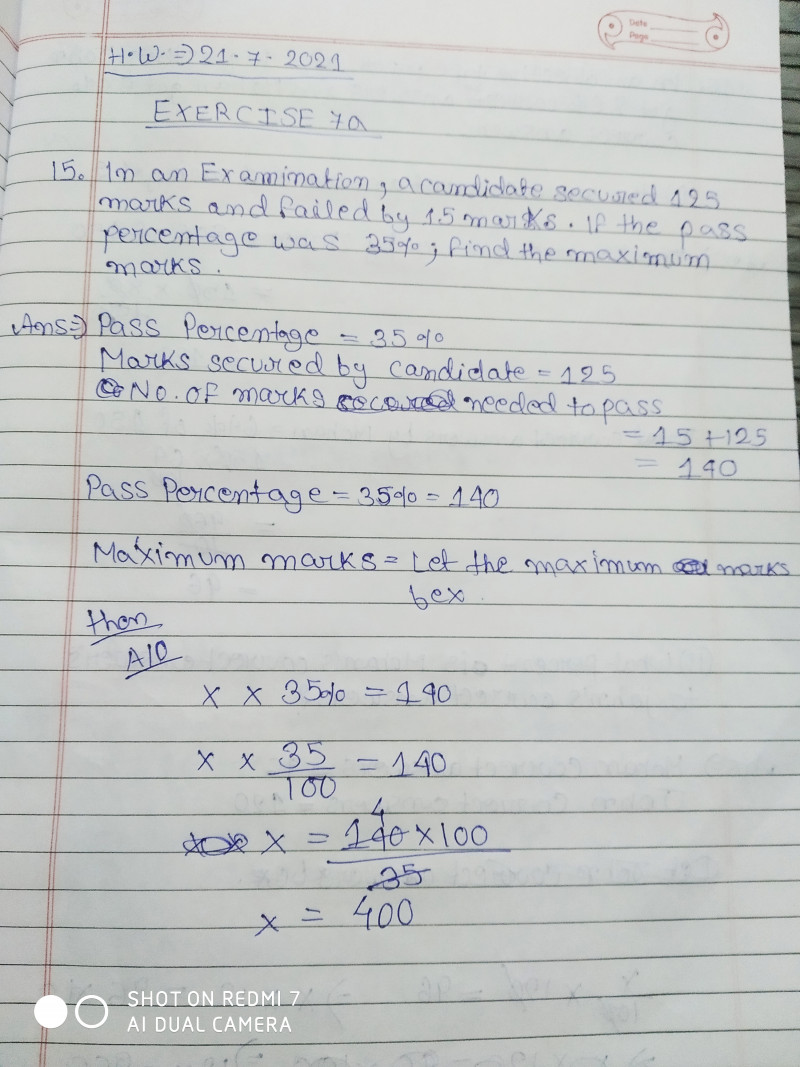 Date
Page
H.W. ⇒ 21.7.2021
EXERCISE 7a
15. In an Examination, a candidate secured 125
marks and failed by 15 marks. If the pass
percentage was 35%; find the maximum
marks.
Ans⇒ Pass Percentage = 35%
Marks secured by candidate = 125
No. of marks needed to pass
= 15 + 125
= 140
Pass Percentage = 35% = 140
Maximum marks = Let the maximum marks
be x
then
A/Q
x × 35% = 140
x × 35/100 = 140
4
x = 140 × 100
35
x = 400
SHOT ON REDMI 7
AI DUAL CAMERA